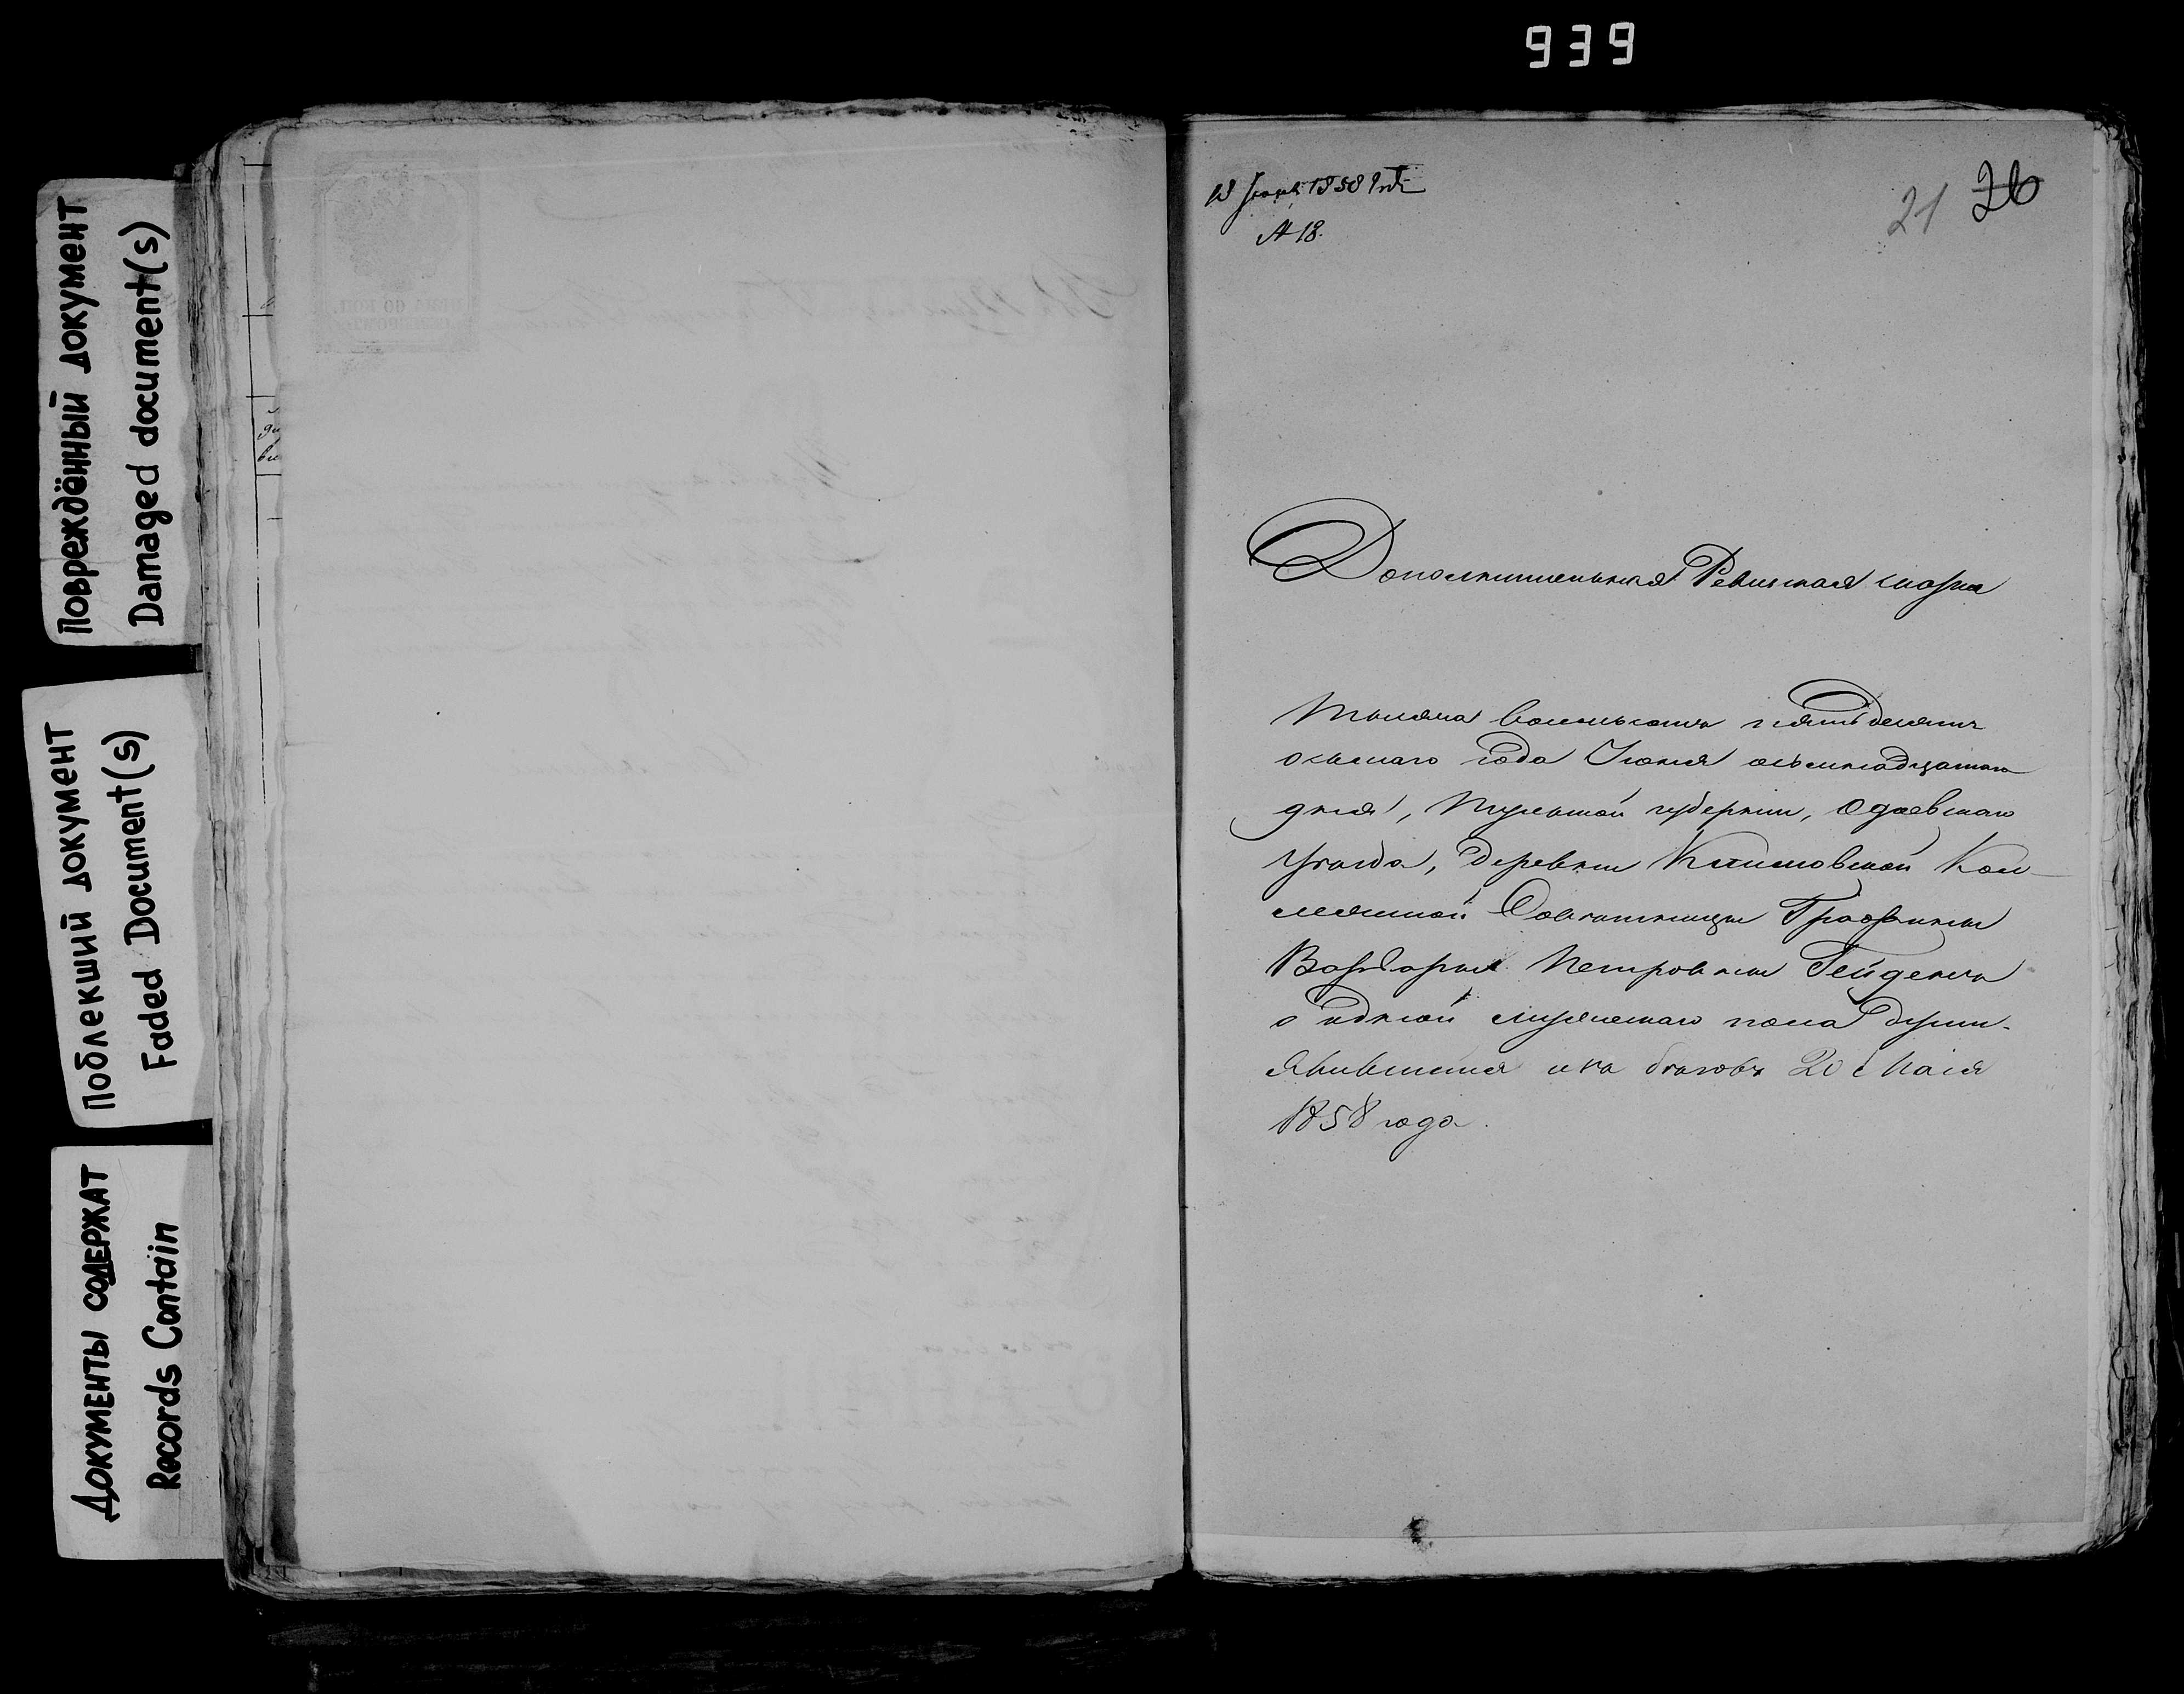 939
Повреждённый документ
Damaged document(s)
Поблекший документ
Faded Document(s)
Документы содержат
Records Contain
18 Іюня 1858 года
№ 18.
21 26
Дополнительная Ревизская сказка
Тысяча восемьсотъ пятьдесятъ
осьмаго года Іюня осьмнадцатаго
дня, Тульской губерніи, Одоевскаго
уѣзда, деревни Кол-
лежской Совѣтницы Графини
Варвары Петровны Гейденъ
о одной мужескаго пола души.
явившейся изъ бѣговъ 20 Маія
1858 года.